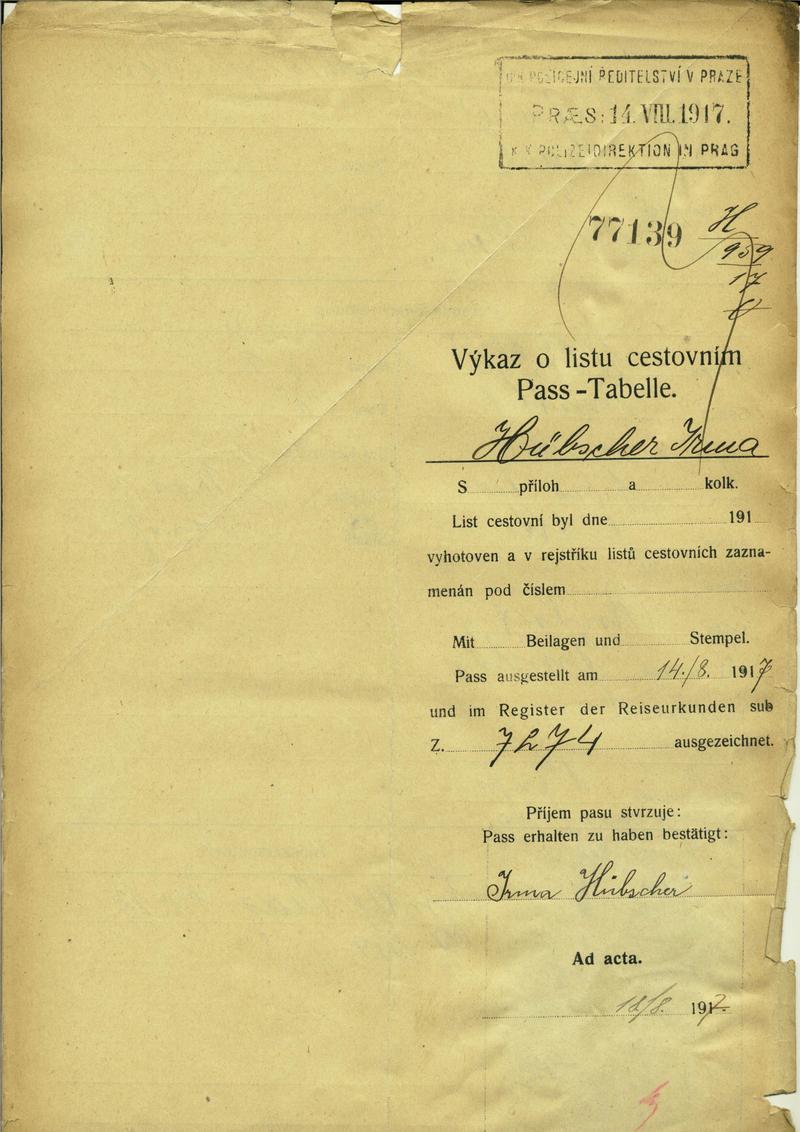 POLICEJNÍ ŘEDITELSTVÍ V PRAZE
PRÆS: 14. VIII. 1917.
K. K. POLIZEIDIREKTION IN PRAG
77139
H
959
17
Výkaz o listu cestovním
Pass-Tabelle.
Hübscher Irma
S příloh a kolk.
List cestovní byl dne 191
vyhotoven a v rejstříku listů cestovních zazna-
menán pod číslem
Mit Beilagen und Stempel.
Pass ausgestellt am 14./8. 1917
und im Register der Reiseurkunden sub
Z. 7274 ausgezeichnet.
Příjem pasu stvrzuje:
Pass erhalten zu haben bestätigt:
Irma Hübscher
Ad acta.
18/8. 1917.